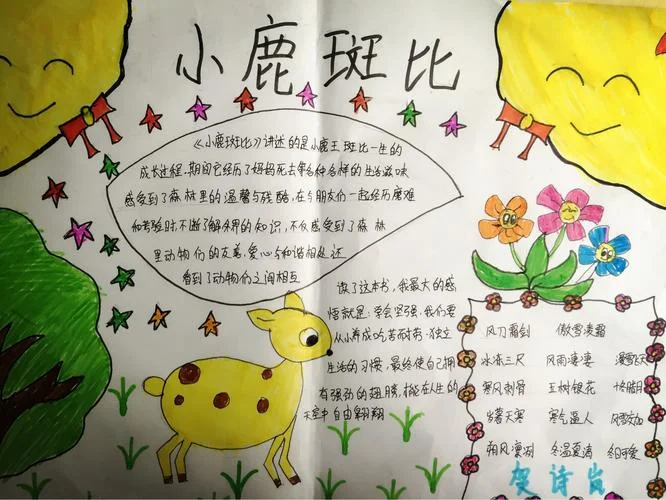 小鹿斑比
《小鹿斑比》讲述的是小鹿王斑比一生的
成长过程.期间它经历了妈妈死去等各种各样的生活滋味
感受到了森林里的温馨与残酷,在与朋友们一起经历磨难
和考验时,不断了解外界的知识,不仅感受到了森林
里动物们的友善,爱心与和谐相处还
看到了动物们之间相互
读了这本书,我最大的感
悟就是:学会坚强,我们要
从小养成吃苦耐劳·独立
生活的习惯,最终使自己拥
有强劲的翅膀,才能在人生的
天空中自由翱翔
风刀霜剑 傲雪凌霜
冰冻三尺 风雨凄凄 漫雪飞天
寒风刺骨 玉树银花 十冬腊月
岁暮天寒 寒气逼人 风雪交加
朔风凛冽 冬温夏清 冬日可爱
贺诗岚